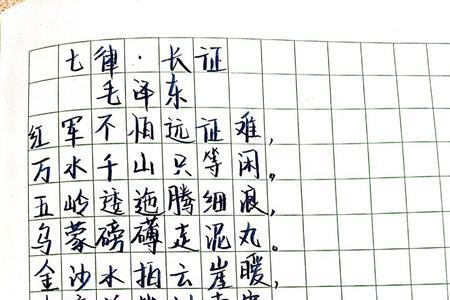 七律·长证
毛泽东
红军不怕远证难，
万水千山只等闲。
五岭逶迤腾细浪，
乌蒙磅礴走泥丸。
金沙水拍云崖暖，